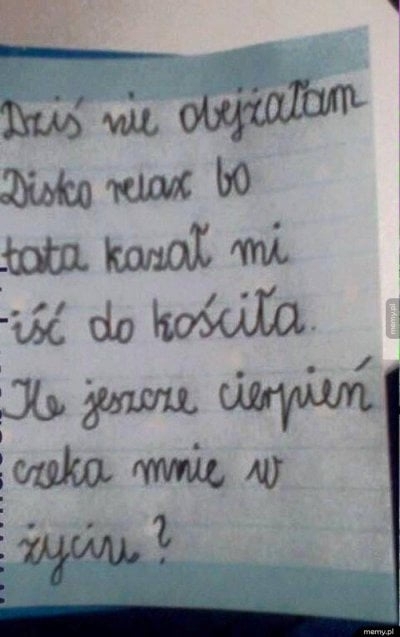 Dziś nie obejżałam
Disko relax bo
tata kazał mi
iść do kościła.
Ile jeszcze cierpień
czeka mnie w
życiu?
memy.pl
memy.pl